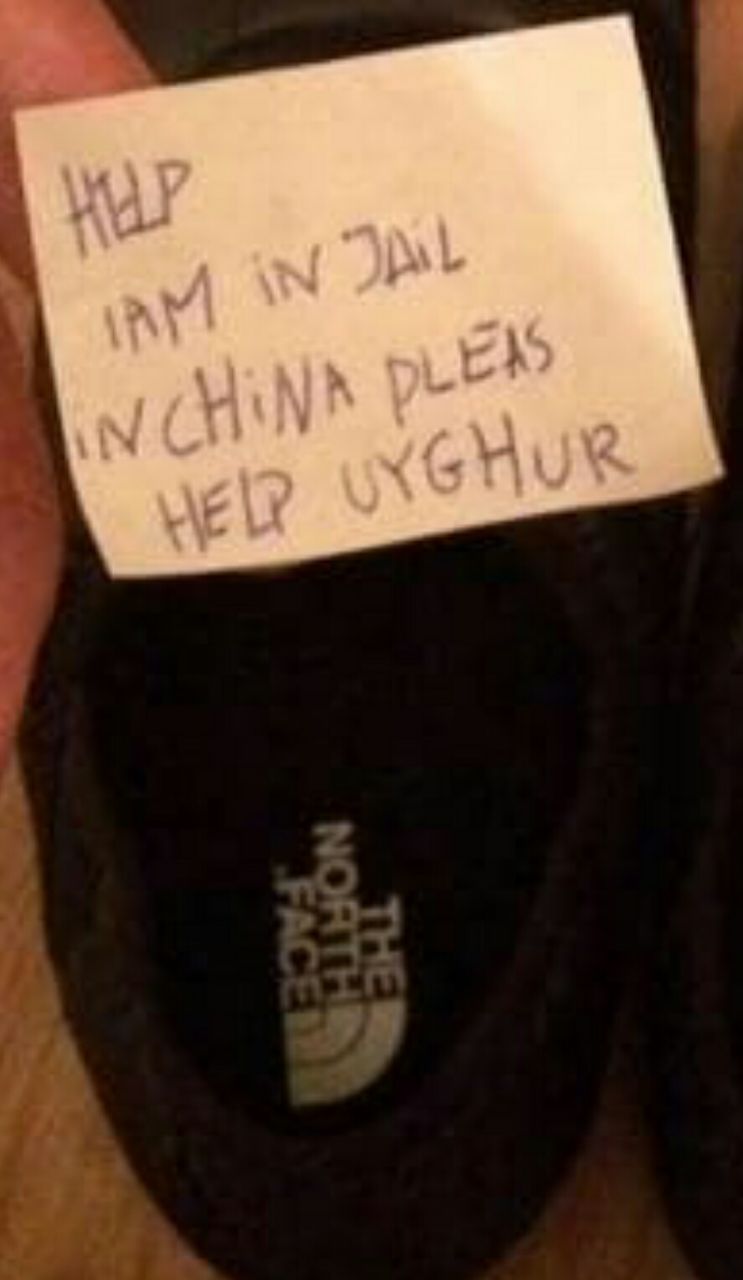 HELP
I AM iN JAiL
iN CHiNA PLEAS
HELP UYGHUR
THE
NORTH
FACE